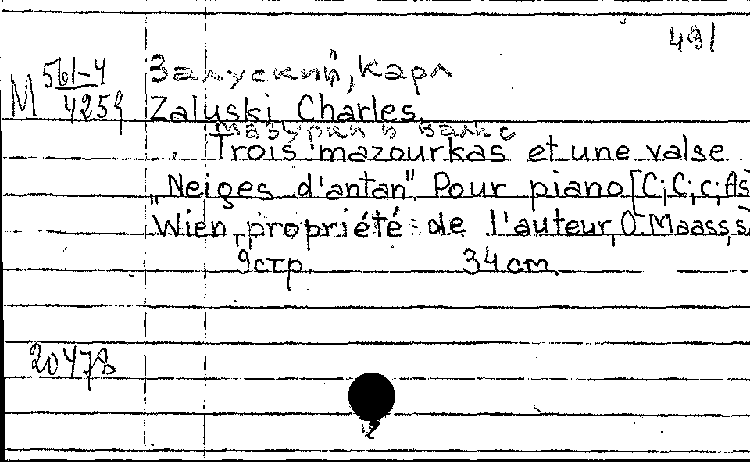 491
Залуский, Карл
М 561-4
4259
Zaluski Charles.
мазурки в вальс
Trois mazourkas et une valse
„Neiges d'antan". Pour piano [C; C; c; As
Wien, propriété de l'auteur, O. Maass, s
9 стр. 34 cm.
20478